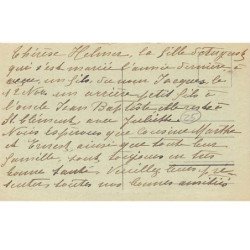 Thérèse Helmer, la fille d'August
qui s'est mariée l'année dernière a
un fils du nom Jacques le
12 Nov un arrière petit fils à
l'oncle Jean Baptiste
St Clément avec Juliette.
Nous espérons que cousine Marthe
et Ernest ainsi que toute leur
famille, sont toujours en très
bonne santé Veuillez leur pré-
senter toutes nos bonnes amitiés